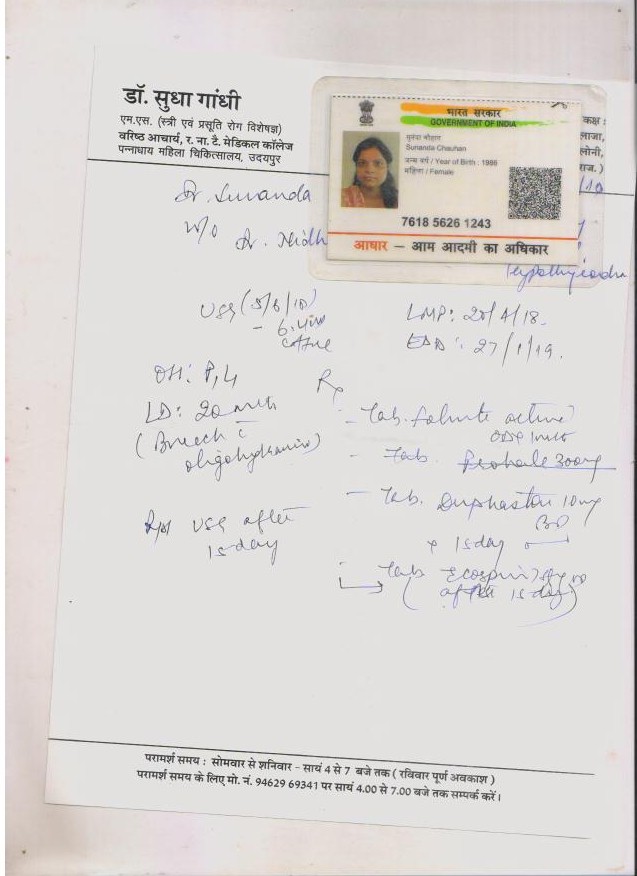 डॉ. सुधा गांधी
एम.एस. (स्त्री एवं प्रसूति रोग विशेषज्ञ)
वरिष्ठ आचार्य, र. ना. टै. मेडिकल कॉलेज
पन्नाधाय महिला चिकित्सालय, उदयपुर
कक्ष :
भारत सरकार
GOVERNMENT OF INDIA
सुनंदा चौहान
Sunanda Chauhan
जन्म वर्ष / Year of Birth : 1986
महिला / Female
7618 5626 1243
आधार – आम आदमी का अधिकार
Dr. Sunanda
W/o Dr. Nidh
USG (5/6/18)
LMP: 20/4/18.
EDD: 27/1/19.
OH: P1L1
Rx
LD: 20 mth
(Breech c
oligohydramnios)
- Tab. Folinite active
- Tab.
- Tab. Duphaston 10mg
BD
x 15 day
Rpt USG after
15 day
Tab Ecosprin 75mg
(after 15 day)
परामर्श समय : सोमवार से शनिवार - सायं 4 से 7 बजे तक ( रविवार पूर्ण अवकाश )
परामर्श समय के लिए मो. नं. 94629 69341 पर सायं 4.00 से 7.00 बजे तक सम्पर्क करें।